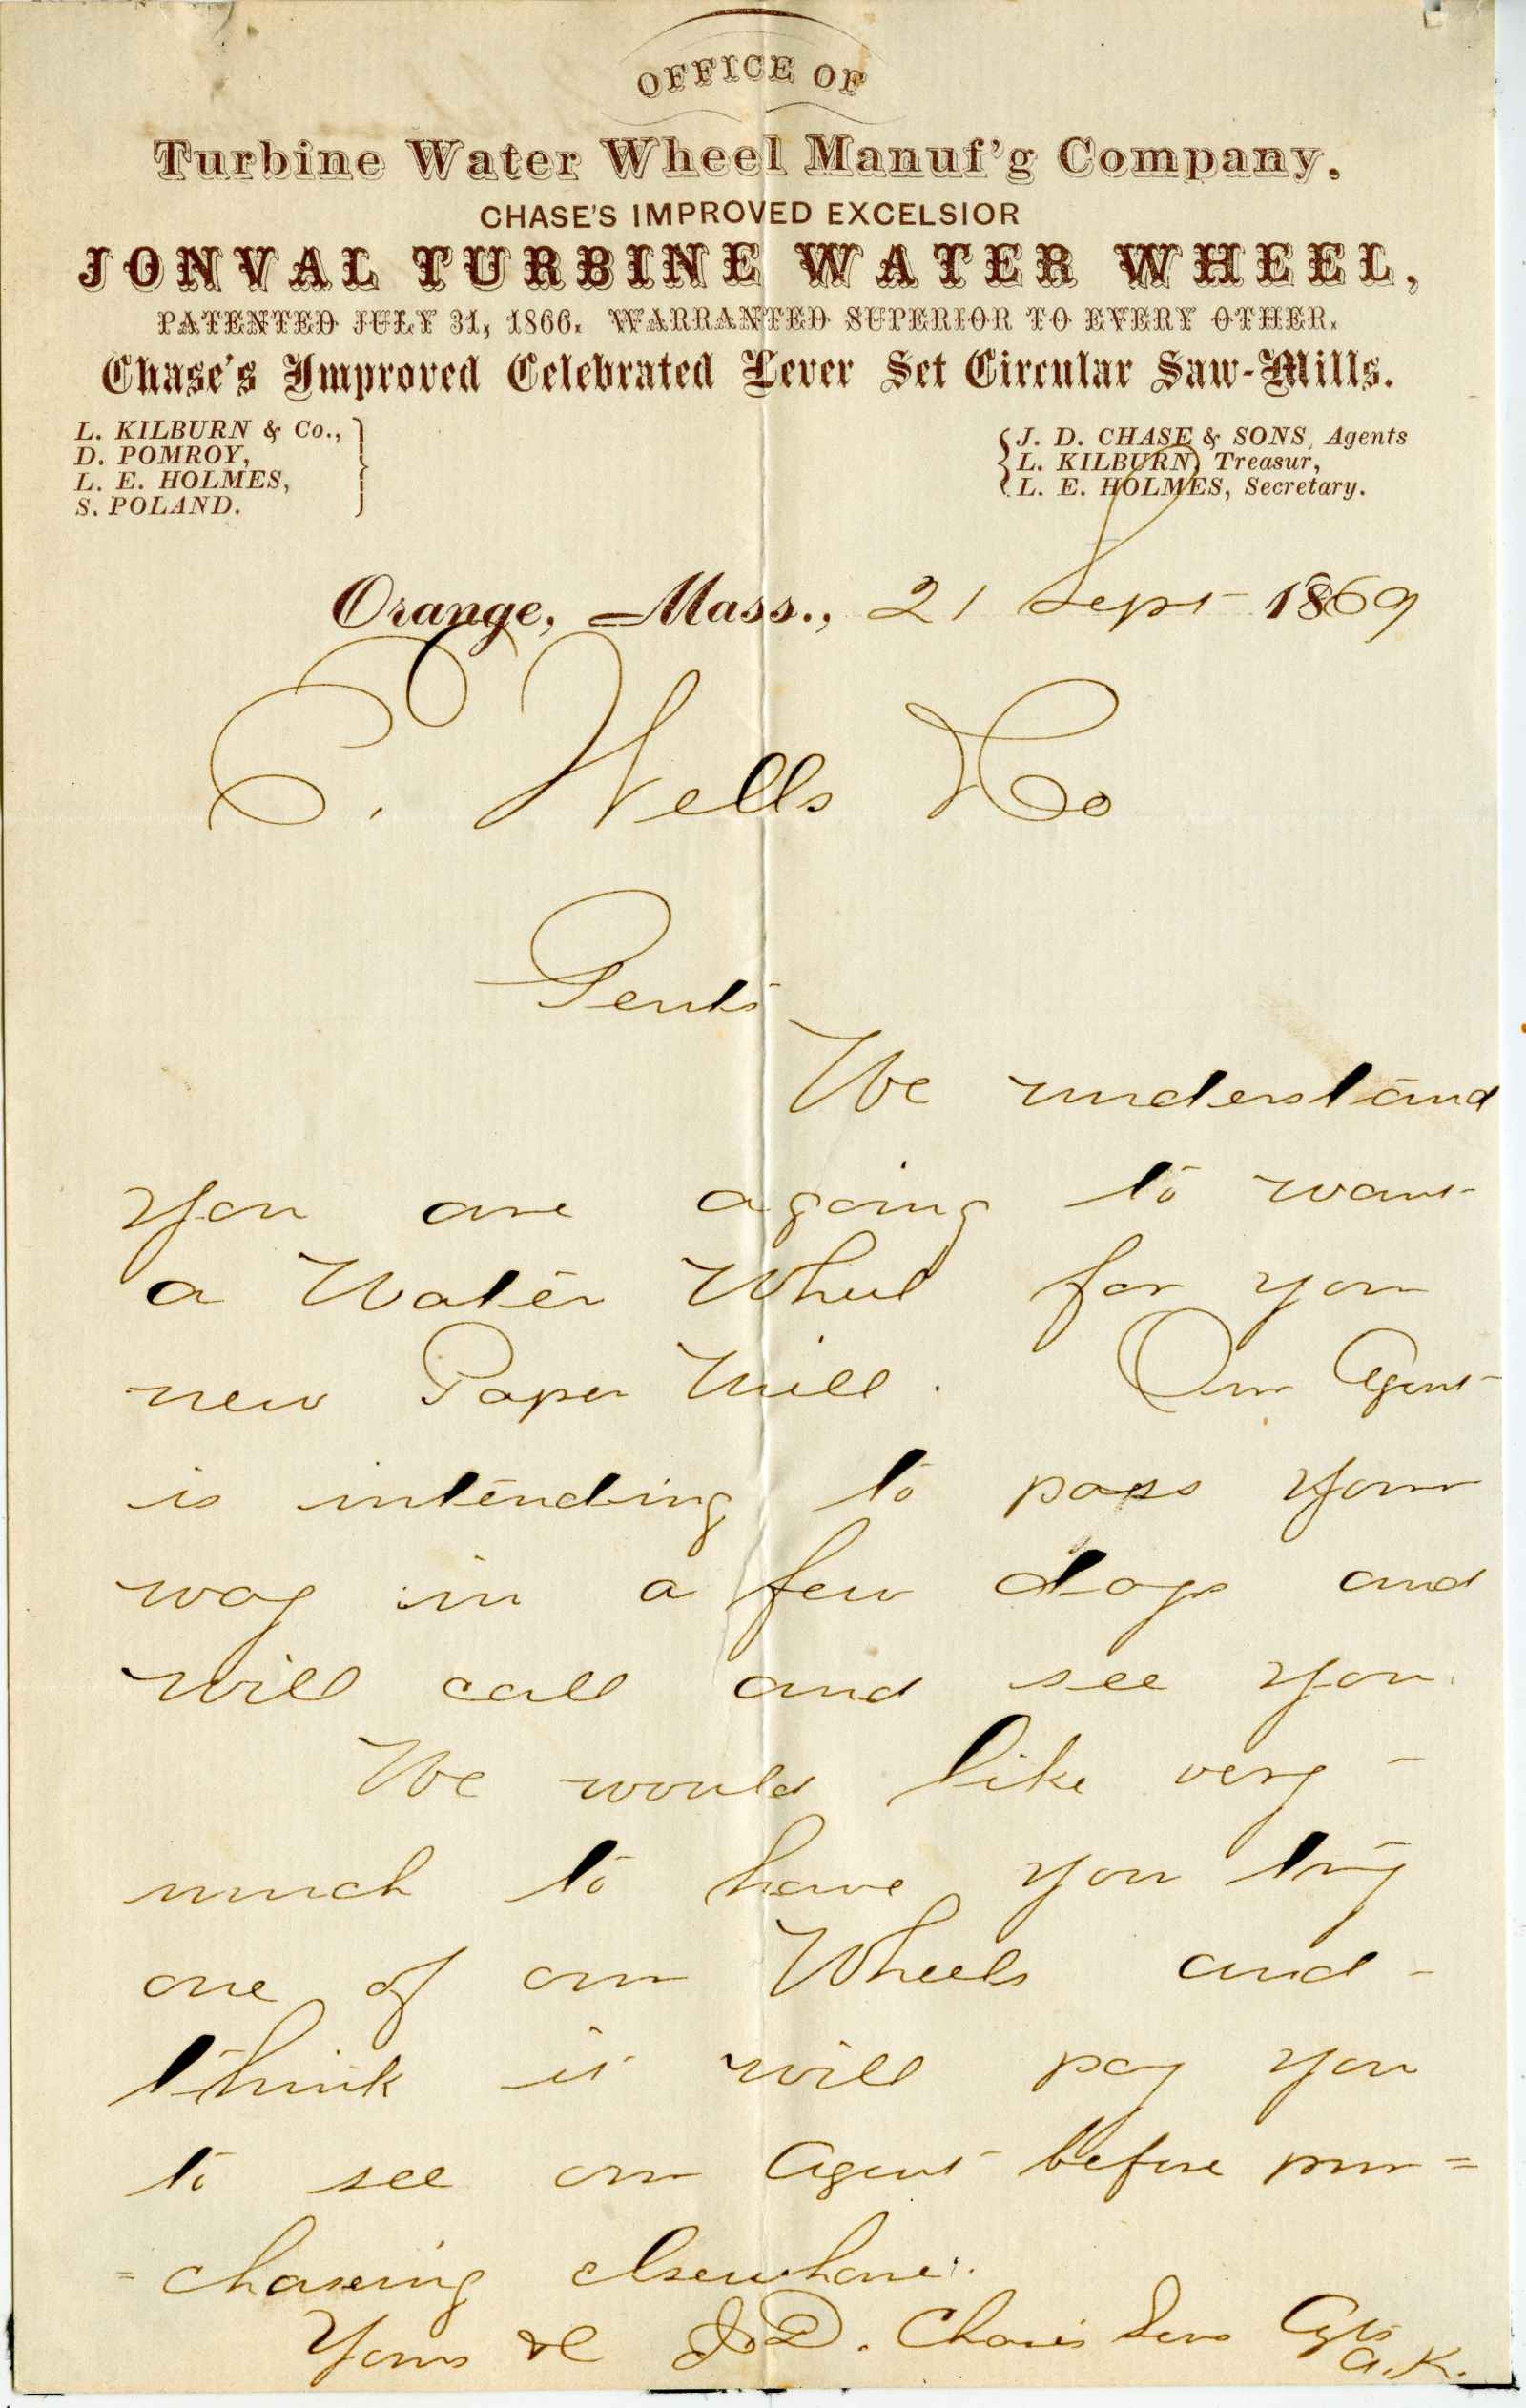 OFFICE OF
Turbine Water Wheel Manuf'g Company.
CHASE'S IMPROVED EXCELSIOR
JONVAL TURBINE WATER WHEEL,
PATENTED JULY 31, 1866. WARRANTED SUPERIOR TO EVERY OTHER.
Chase's Improved Celebrated Lever Set Circular Saw-Mills.
L. KILBURN & Co.,
D. POMROY,
L. E. HOLMES,
S. POLAND.
J. D. CHASE & SONS, Agents
L. KILBURN, Treasur,
L. E. HOLMES, Secretary.
Orange, Mass., 21 Sept 1869
C. Wells & Co
Gents
We understand
you are agoing to want
a Water Wheel for your
new Paper Mill. Our Agent
is intending to pass your
way in a few days and
will call and see you.
We would like very
much to have you try
one of our Wheels and
think it will pay you
to see our Agent before pur=
=chaseing elsewhare.
Yours &c J. D. Chase Sons Agts
A. K.